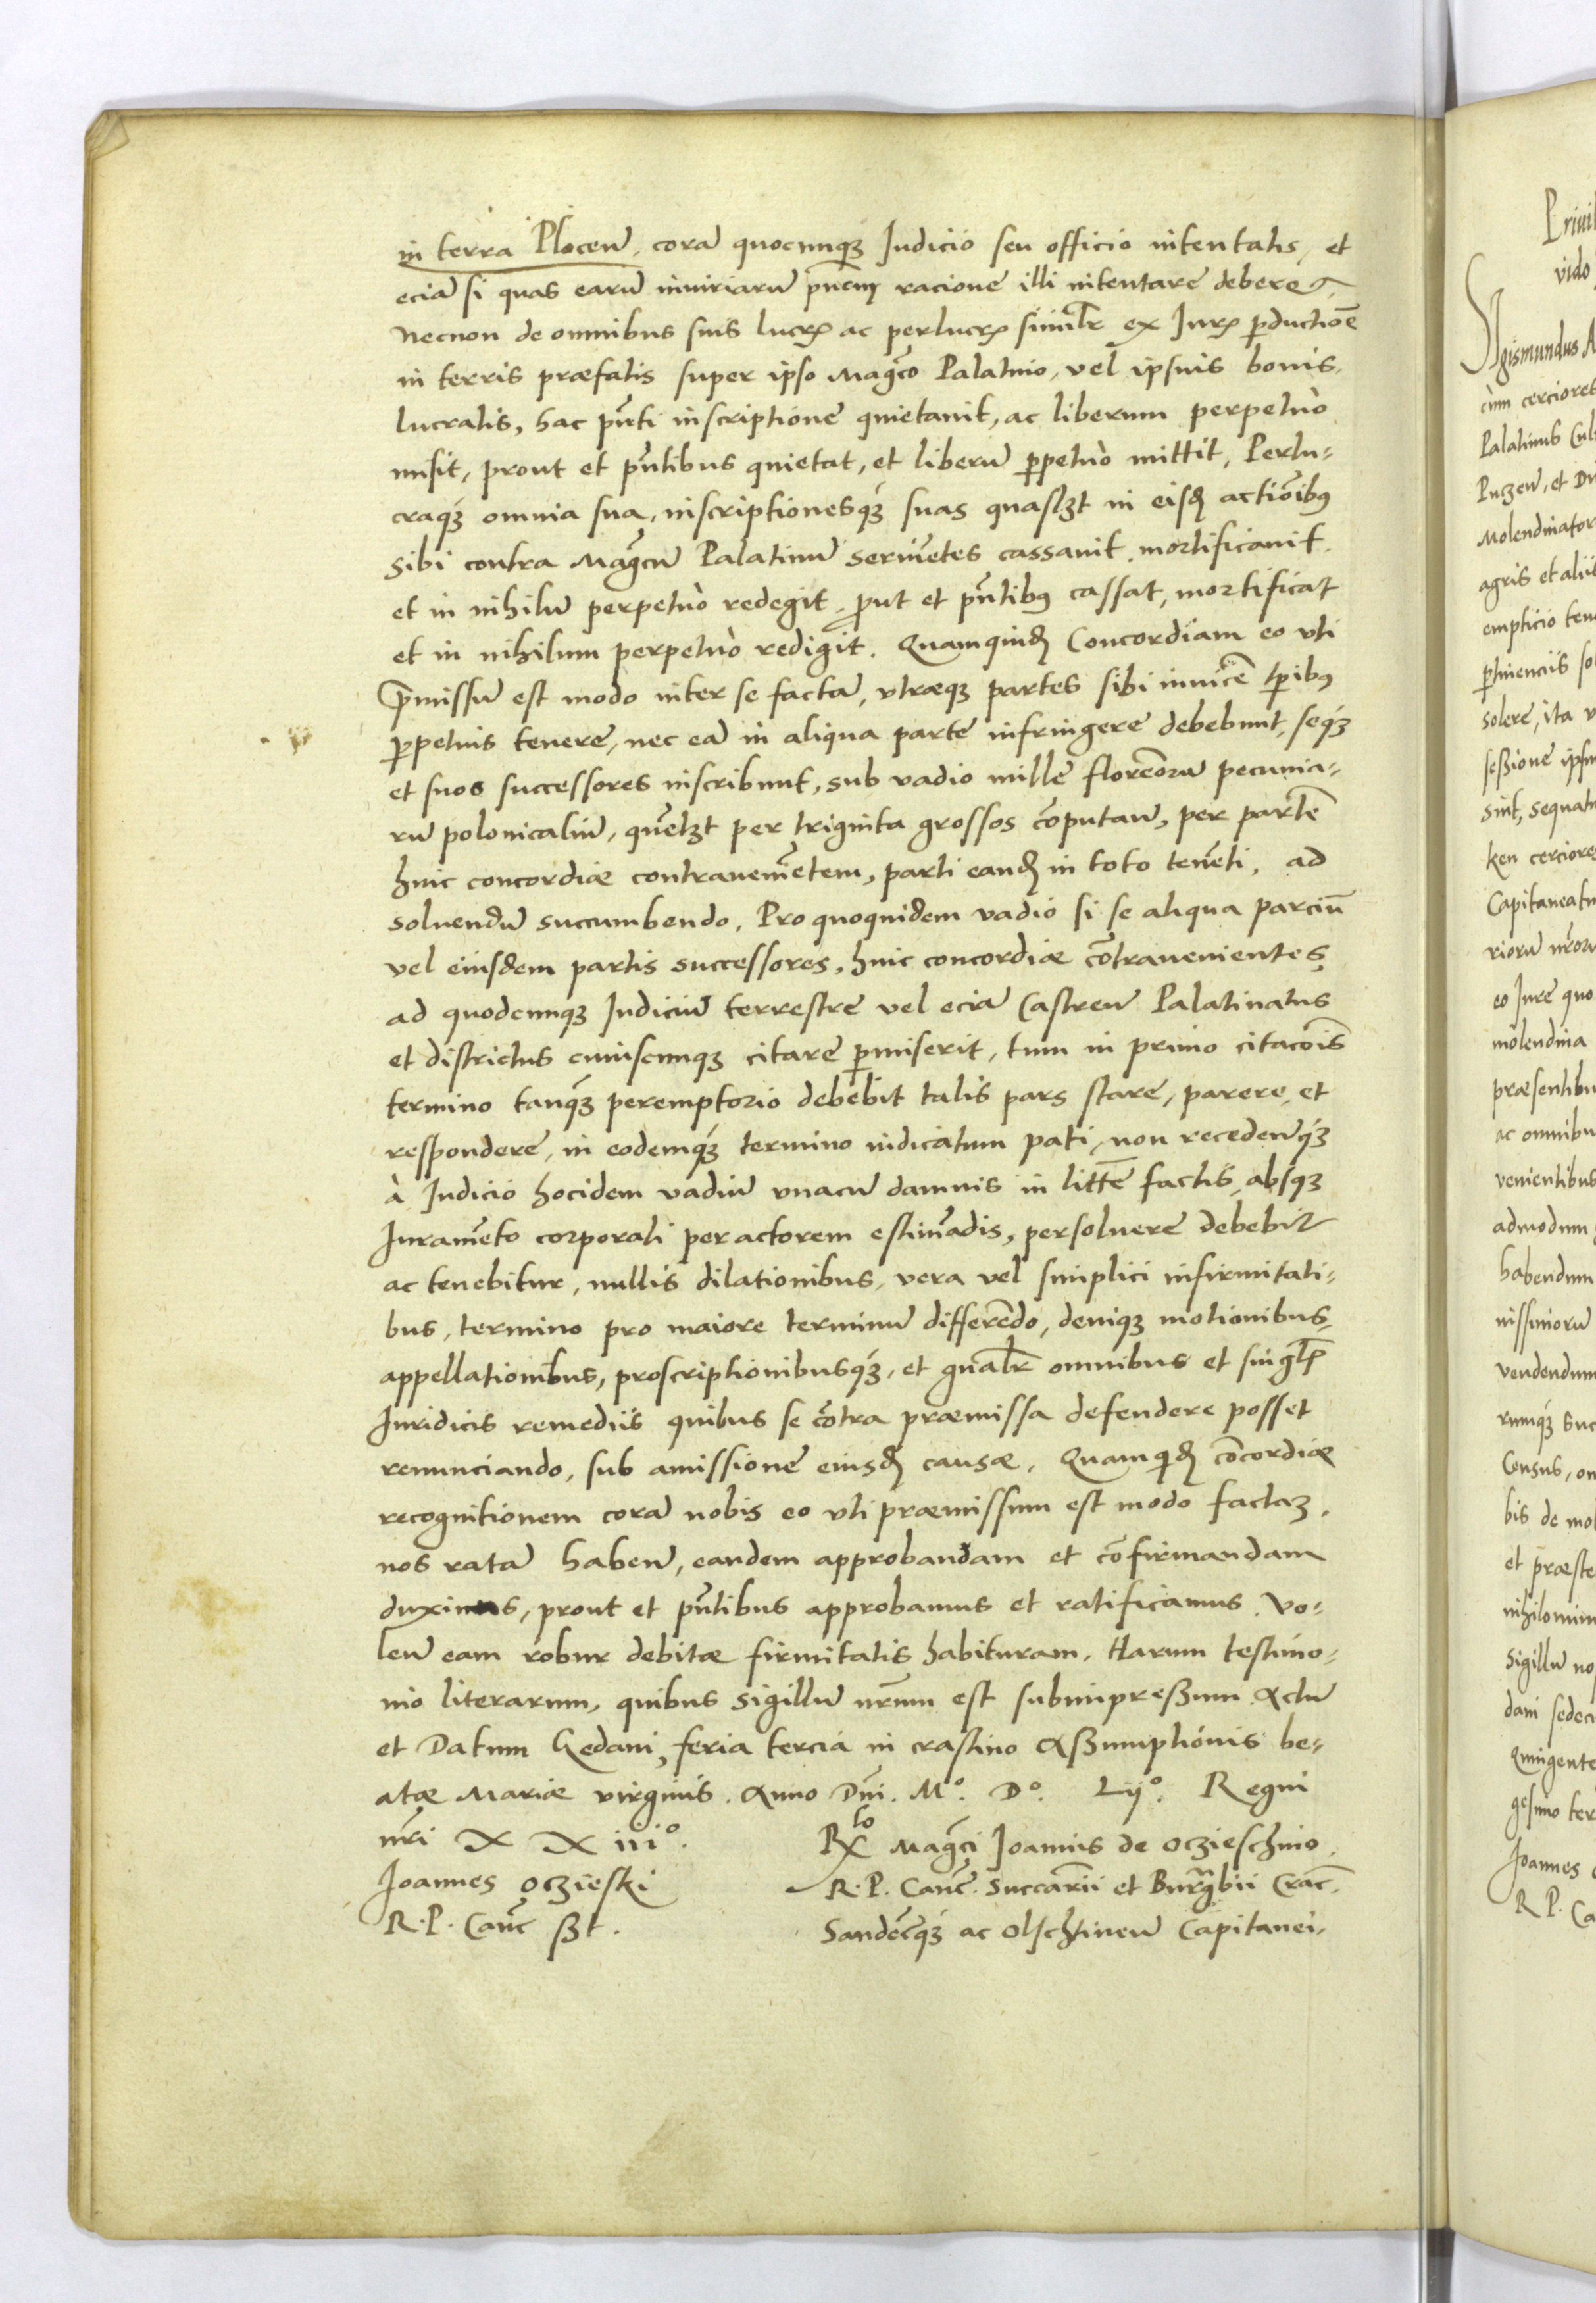 in terra Plocen̄, corā quocunq₃ Iudicio seu officio intentatis, et
eciā si quas earū iniuriarū pn̄cm racione illi intentare deberet,
necnon de omnibus suis lucꝝ ac perlucꝝ simil̄r ex Iurꝝ ꝑductiōe
in terris præfatis super ipso Mag̃co Palatino, vel ipsius bonis,
lucratis, hac pn̄ti inscriptione quietauit, ac liberum perpetuò
misit, prout et pn̄tibus quietat, et liberū ꝑpetuò mittit, Perlu-
craq₃ omnia sua, inscriptionesq₃ suas quasl₃t in eisd̄ actiōibꝰ
sibi contra Mag̃cū Palatinū seruiētes cassauit, mortificauit,
et in nihilū perpetuò redegit, ꝓut et pn̄tibꝰ cassat, mortificat
et in nihilum perpetuò redigit. Quamquid̄ Concordiam eo vti
p̄missū est modo inter se factā, vtræq₃ partes sibi inuicē tp̄ibꝰ
ꝑpetuis tenere, nec eā in aliqua parte infringere debebunt, seq₃
et suos successores inscribunt, sub vadio mille florēorū pecunia-
rū polonicaliū, quēl₃t per triginta grossos cōputan̄, per partē
huic concordiæ contraueniētem, parti eand̄ in toto tenēti, ad
soluendū succumbendo. Pro quoquidem vadio si se aliqua parciū
vel eiusdem partis successores, huic concordiæ cōtrauenientes,
ad quodcunq₃ Iudiciū terrestre vel eciā Castren̄ Palatinatus
et districtus cuiuscunq₃ citare ꝑmiserit, tum in primo citacōis
termino tanq₃ peremptorio debebit talis pars stare, parere, et
respondere, in eodemq₃ termino iudicatum pati, non recedenq₃
à Iudicio hocidem vadiū vnacū damnis in litte factis, absq₃
Iuramēto corporali per actorem estimādis, persoluere debebit
ac tenebitur, nullis dilationibus, vera vel simplici infirmitati-
bus, termino pro maiore terminū differēdo, deniq₃ motionibus,
appellationibus, proscriptionibusq₃, et gn̄al̄r omnibus et singl̄is
Iuridicis remediis quibus se cōtra præmissa defendere posset
renunciando, sub amissione eiusd̄ causæ. Quamqid̄ cōcordiæ
recognitionem corā nobis eo vti præmissum est modo factā₃,
nos ratā haben̄, eandem approbandam et cōfirmandam
duximus, prout et pn̄tibus approbamus et ratificamus. Vo-
len̄ eam robur debitæ firmitatis habituram. Harum testimo-
nio literarum, quibus sigillū nr̄um est subimpressum. Actū
et Datum Gedani, feria tercia in crastino Assumptionis be-
atæ Mariæ virginis. Anno Dn̄i. Mº. Dº. Lijº. Regni
nr̄i XXiiiº.
Rlo Mag̃ci Ioannis de Oczieschino
Ioannes Oczieski
R. P. Canc̄. Succam̄rii et Burg̃bii Crac̄.
R. P. Canc̄ sst.
Sandec̄q₃ ac Olschtinen̄ Capitanei.